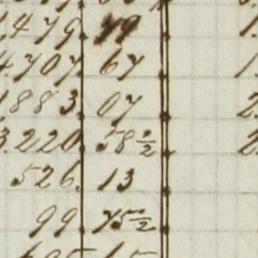 ,479. 49
4.707. 67
,883. 07
3.220. 58½
526. 13
99. 45½